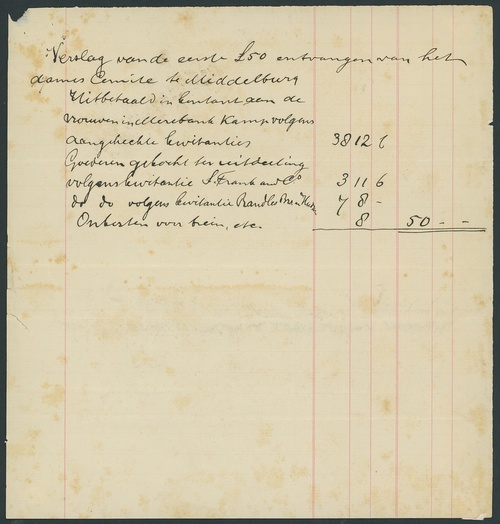 Verslag van de eerste £50 ontvangen van het
dames Comite te Middelburg
Uitbetaald in Contant aan de
vrouwen in Merebank Kamp volgens
aangehechte kwitanties 38 12 6
Goederen gekocht ter uitdeeling
volgens kwitantie S. Frank and Co 3 11 6
do do volgens kwitantie Randles Bro & 7 8 -
Onkosten voor trein, etc. 8 50 - -